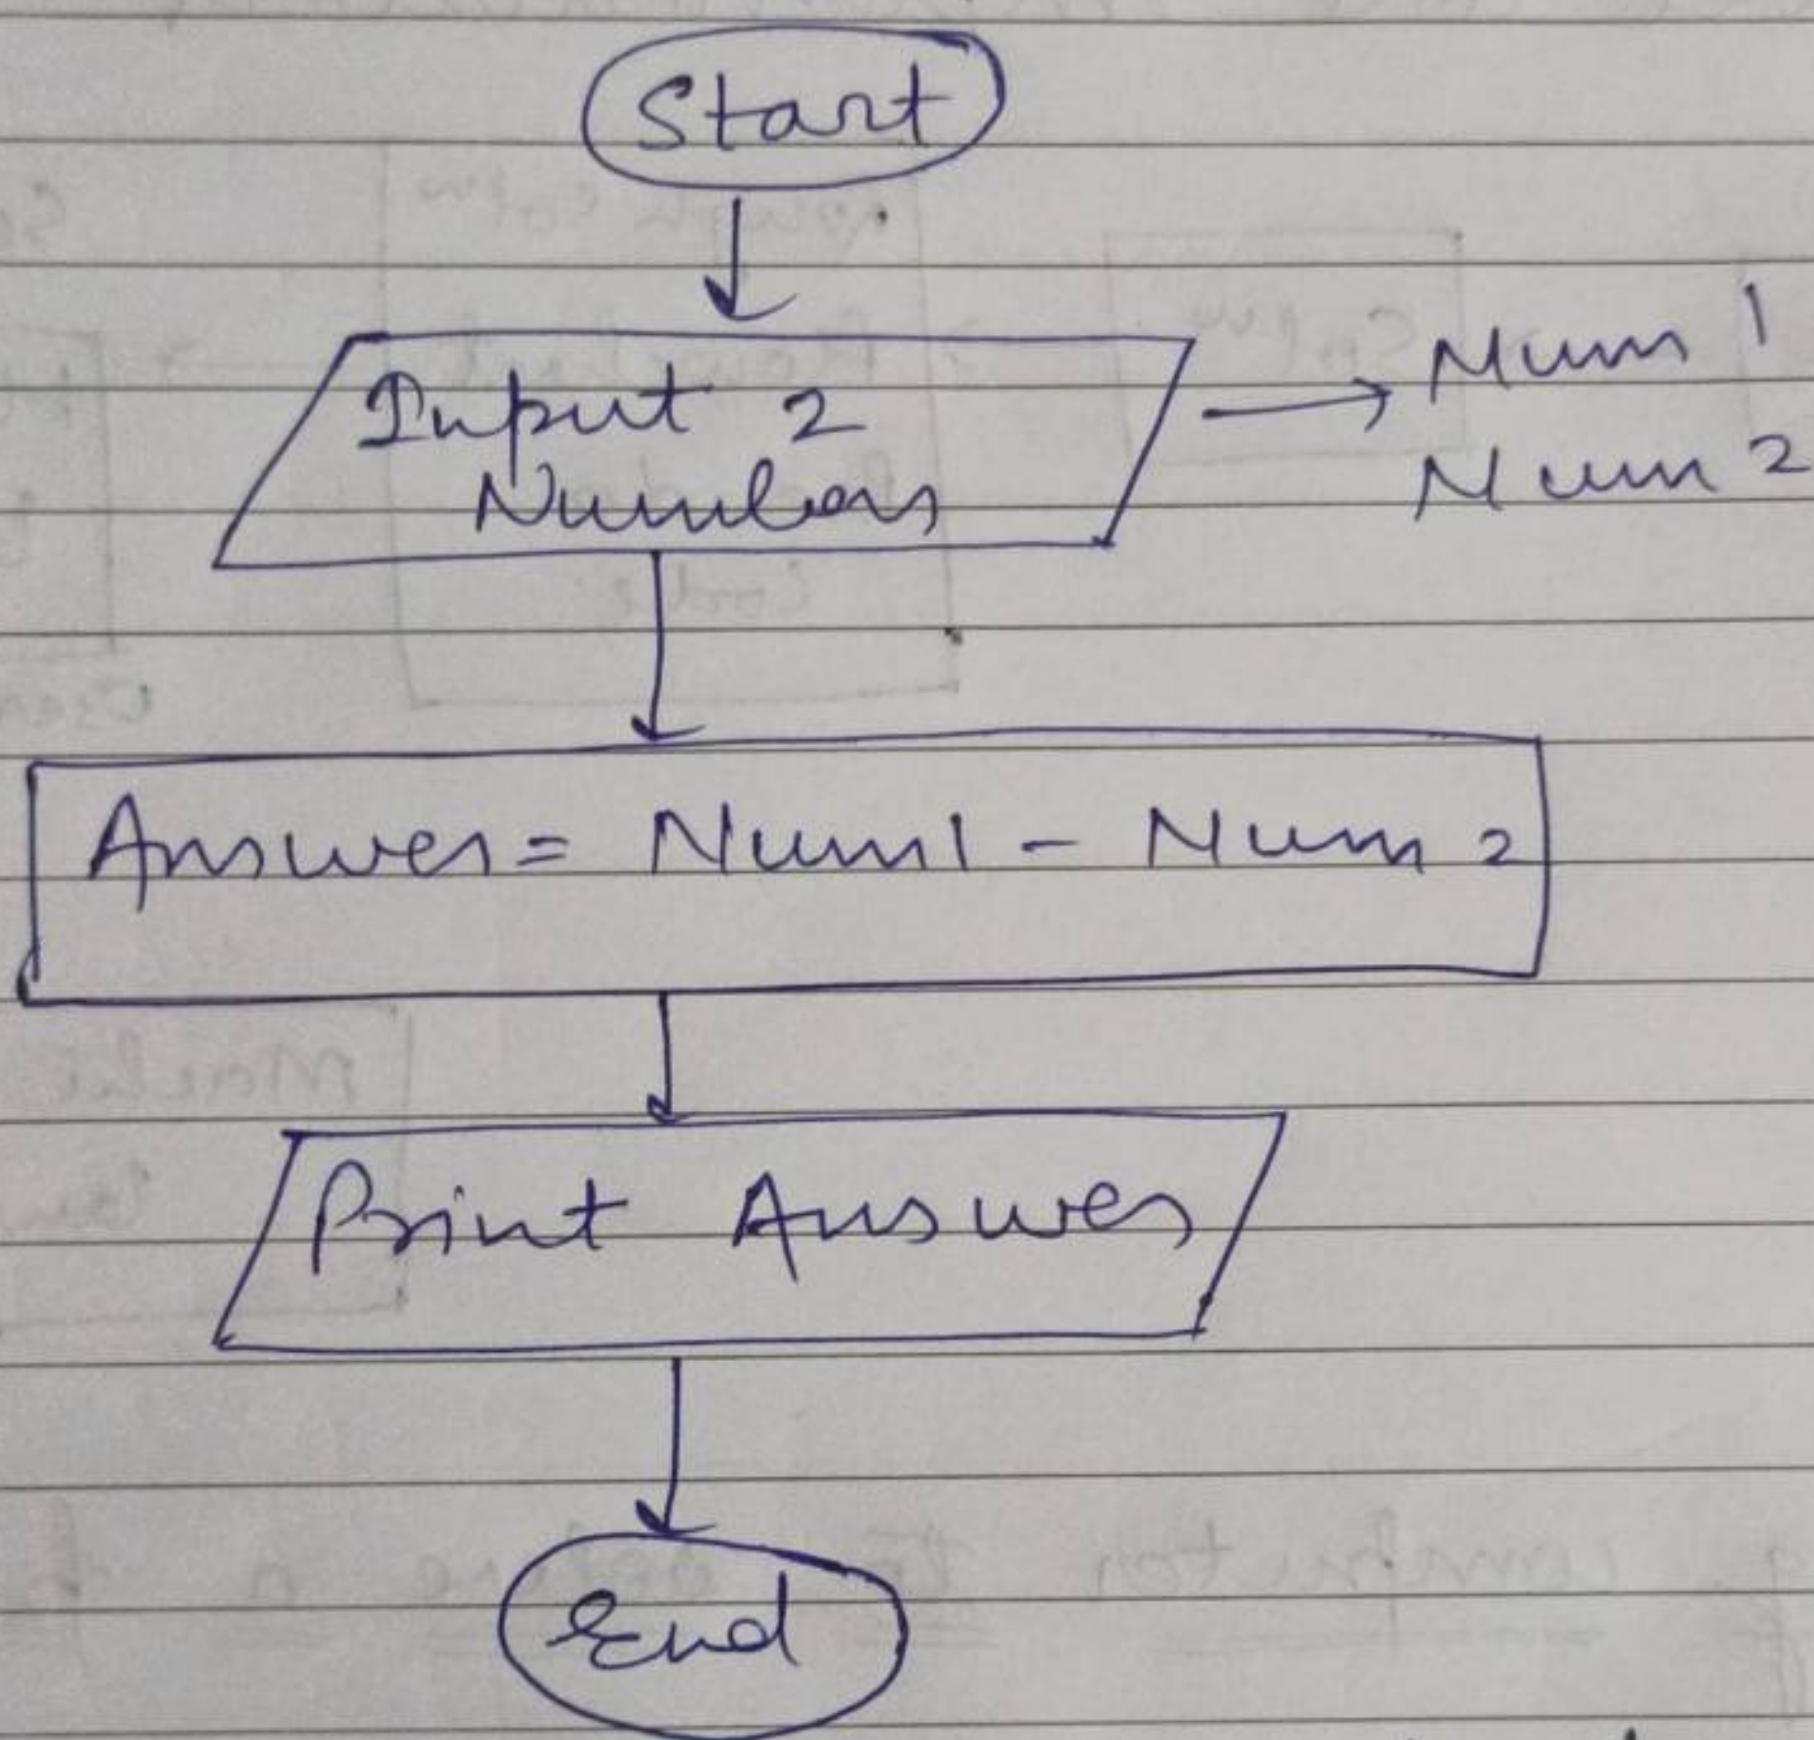 Start
Input 2
Numbers
Num 1
Num 2
Answer = Num1 - Num 2
Print Answer
End